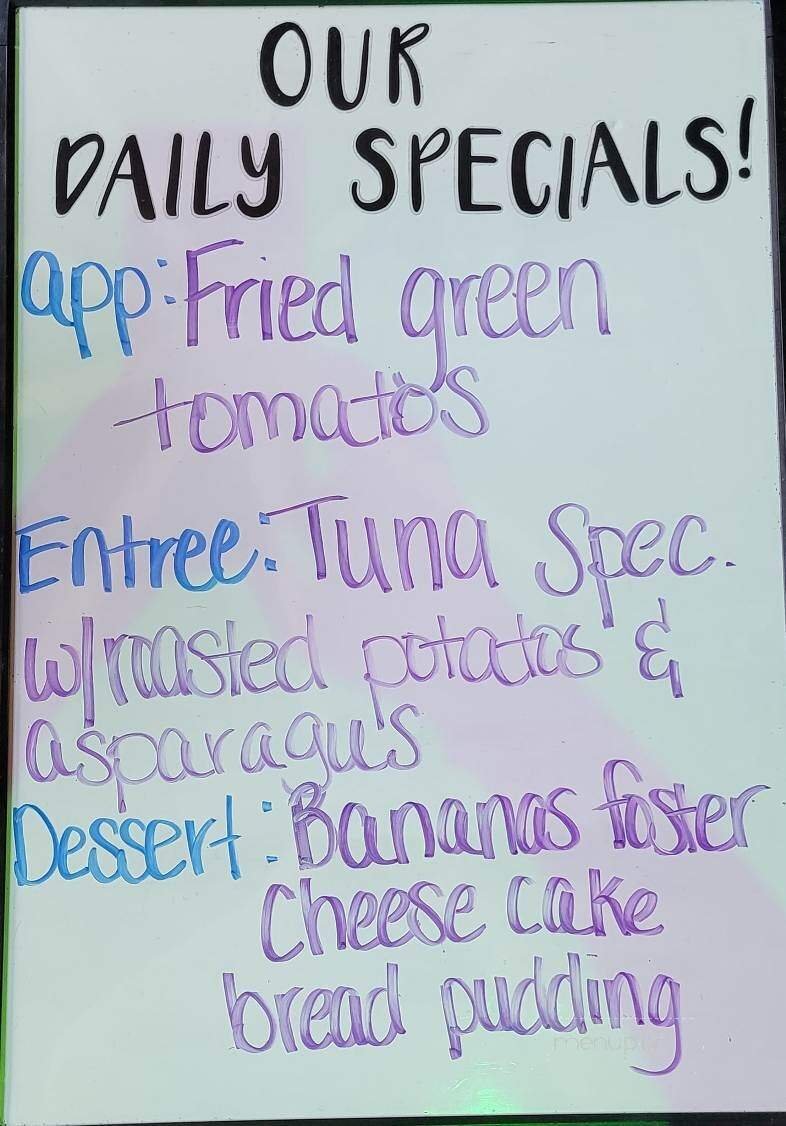 OUR
DAILY SPECIALS!
app: Fried green
tomatos
Entree: Tuna Spec.
w/roasted potatos &
asparagus
Dessert: Bananas foster
Cheese cake
bread pudding